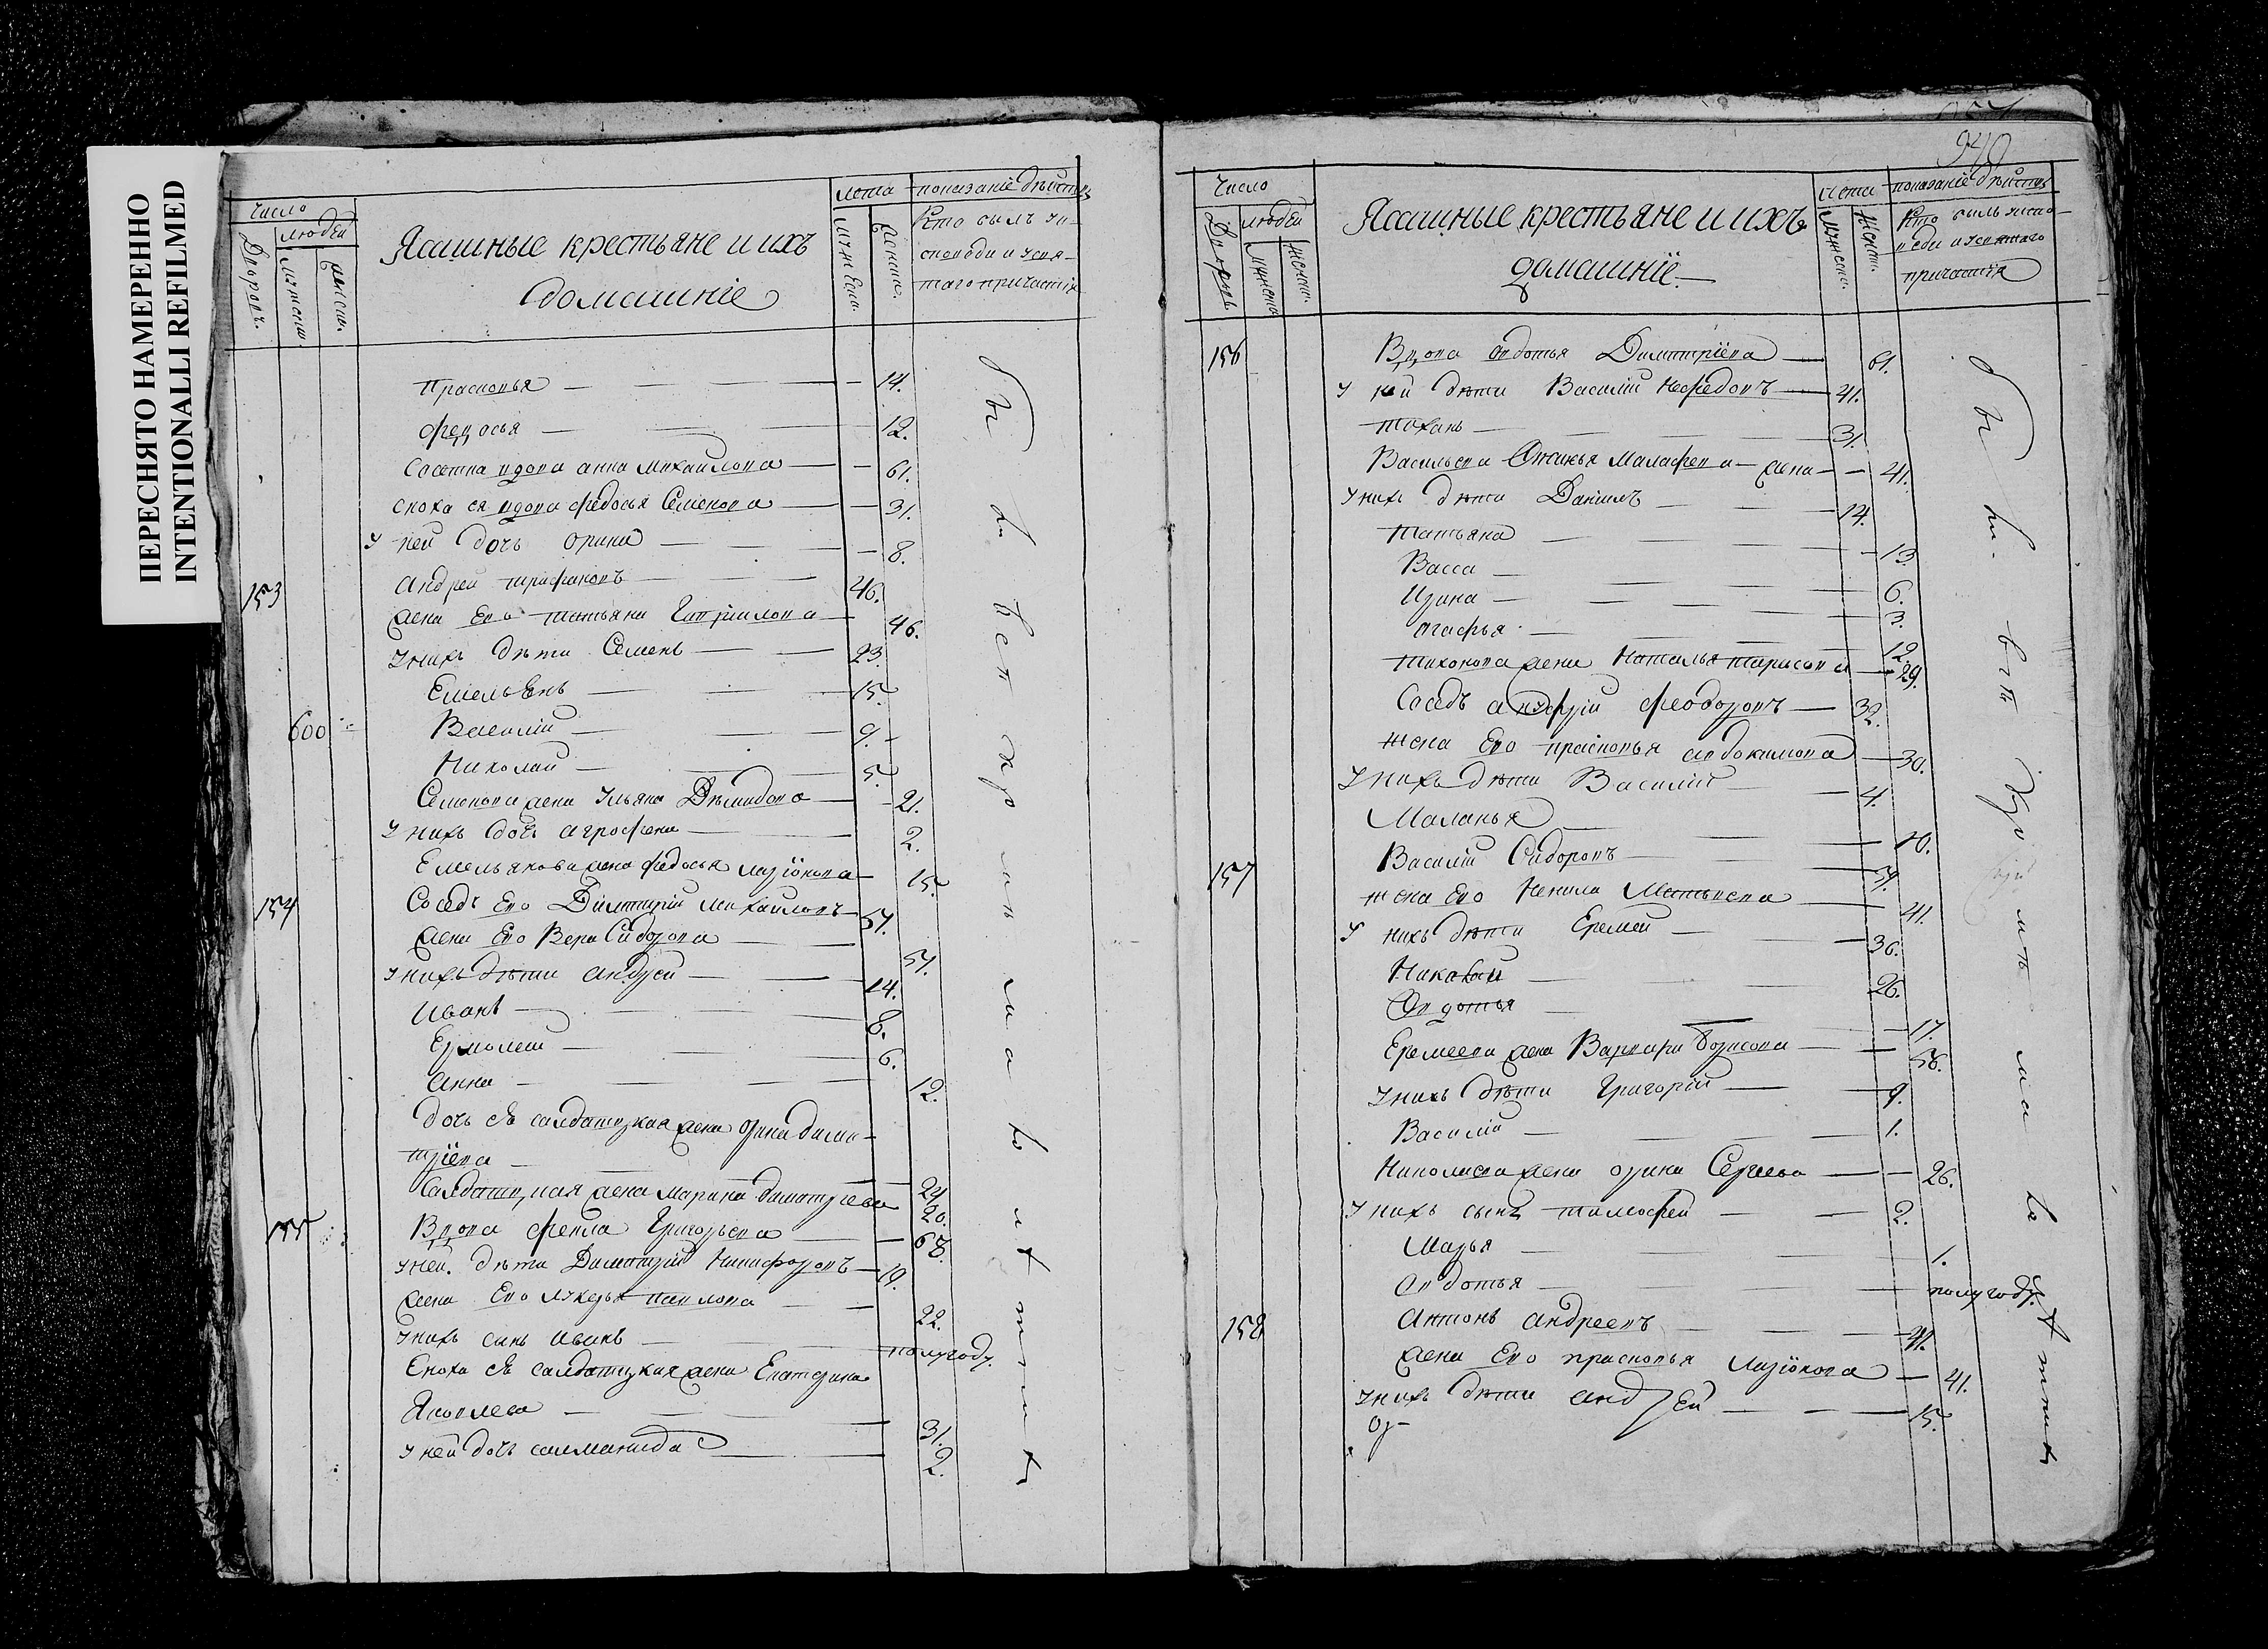 ПЕРЕСНЯТО НАМЕРЕННО
INTENTIONALLI REFILMED
Число
людей
Дворовъ.
мужеска.
женска.
Ясашные крестьяне и ихъ
домашніе
лета
мужеска.
женска.
показаніе действъ
Кто былъ ис-
споведи и свя-
таго причастія
Прасковья — 14.
Федосья — 12.
соседка вдова анна михаилова — 61.
сноха ея вдова федосья Семенова — 31.
У ней дочь орина — 8.
153 андрей трифановъ 46.
жена Ево татьяна Гаврилова — 46.
У нихъ дети Семенъ — 23.
Емельянъ — 15.
600 Василий — 9.
Николай — 5.
Семенова жена Ульяна Демидова — 21.
У нихъ дочь агрофена — 2.
Емельянова жена федосья ларионова — 15.
154 Соседъ Ево Димитрий михаиловъ 51.
жена Ево Вера Сидорова — 51.
У нихъ дети андрей — 14.
Иванъ — 8.
Ермолай — 6.
анна — 12.
дочь ея салдатцкая жена орина дими-
триева — 24.
Салдатцкая жена марина димитриева 20.
155 Вдова фекла Григорьева — 68.
У ней дети Димитрий Никифоровъ — 19.
жена Ево лукерья павлова — 22.
У нихъ сынъ иванъ — полугоду.
Сноха ея салдатцкая жена Екатерина
Яковлева — 31.
У ней дочь саламанида — 2.
940
Число
людей
Дворовъ.
мужеска
женск.
Ясашные крестьяне и ихъ
домашніе
лета
мужеска.
женск.
показаніе действъ
Кто былъ испо-
веди и святаго
причастія
156 Вдова авдотья Димитріева — 61.
У ней дети Василий Нефедовъ — 41.
Тиханъ — 31.
Васильева жена — 41.
У нихъ дети Данилъ — 14.
Татьяна — 13.
Васса — 6.
Ирина — 3.
агафья — 12.
Тихонова жена Наталья тарасова — 29.
Соседъ Феодоровъ — 32.
жена Ево прасковья авдокимова — 30.
У нихъ дети Василий — 4.
Маланья — 10.
157 Василий Сидоровъ — 51.
жена Ево Ненила Матвеева — 41.
У нихъ дети Еремей — 36.
Николай — 26.
Авдотья — 17.
Еремеева жена Варвара Борисова — 38.
У нихъ дети Григорий — 9.
Василий — 1.
Николаева жена орина Сергеева — 26.
У нихъ сынъ тимофей — 2.
Марья — 1.
Авдотья — полугоду.
158 Антонъ андреевъ — 41.
жена Ево прасковья ларионова — 41.
У нихъ дети андрей — 15.
Ор-